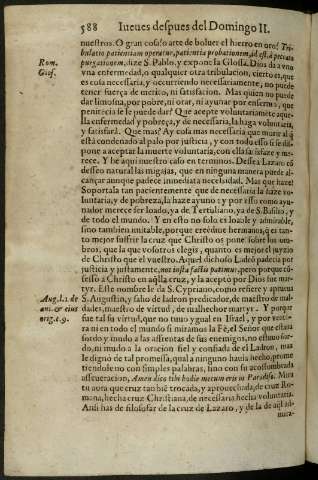 588 Iueues despues del Domingo II.
nuestros. O gran cosa! o arte de boluer el hierro en oro! Tri-
bulatio patientiam operatur, patientia probationem, id est, à peccatis
Rom. purgationem, dize S. Pablo, y expone la Glossa. Dios da a vno
Glos. vna enfermedad, o qualquer otra tribulacion, cierto es, que
es cosa necessaria, y ocurriendo necessariamente, no puede
tener fuerça de merito, ni satisfacion. Mas quien no puede
dar limosna, por pobre, ni orar, ni ayunar por enfermo, que
penitẽcia se le puede dar? Que acepte voluntariamẽte aque-
lla enfermedad y pobreza, y de necessaria, la haga voluntaria,
y satisfará. Que mas? Ay cosa mas necessaria que morir al q̃
está condenado al palo por justicia, y con todo esso si se dis-
pone a aceptar la muerte voluntaria, con ella satisfaze y me-
rece. Y hè aqui nuestro caso en terminos. Dessea Lazaro cõ
desseo natural las migajas, que en ninguna manera puede al-
cançar aunque padece inmediata necessidad. Mas que haze?
Soportala tan pacientemente que de necessaria la haze vo-
luntaria, y de pobreza, la haze ayuno: y por esso como ayu-
nador merece ser loado, ya de Tertuliano, ya de S. Basilio, y
de todo el mundo. Y en esto no solo es admirable,
sino tambien imitable, porque creedme hermanos, q̃ es tan-
to mejor sufrir la cruz que Christo os pone sobre los om-
bros, que la que vosotros elegis, quanto es mejor el juyzio
de Christo que el vuestro. Aquel dichoso Ladrõ padecia por
justicia y justamente, nos iusta factis patimur, pero porque cõ-
fessò a Christo en aq̃lla cruz, y la aceptò por Dios fue mar-
tyr. Este nombre le da S. Cypriano, como refiere y aprueua
Aug. l. 1. de S. Augustin, y salio de ladron predicador, de maestro de mal-
ani. & eius dades, maestro de virtud, de malhechor martyr. Y porque
orig. c. 9. fue tal su virtud, que no tuuo ygual en Israel, y por ventu-
ra ni en todo el mundo si miramos la Fè, el Señor que estaua
sordo y mudo a las afrentas de sus enemigos, no estuuo sor-
do, ni mudo a la oracion fiel y confiada de el Ladron, mas
le digno de tal promessa, qual a ninguno hauia hecho, prome
tiendole no con simples palabras, sino con su acostumbrada
asseueracion, Amen dico tibi hodie mecum eris in Paradiso. Mira
tu aora que cruz tan biẽ trocada, y aprouechada, de cruz Ro-
mana, hecha cruz Christiana, de necessaria hecha voluntaria.
Ansi has de filosofar de la cruz de Lazaro, y de la de aq̃l ad-
mira-